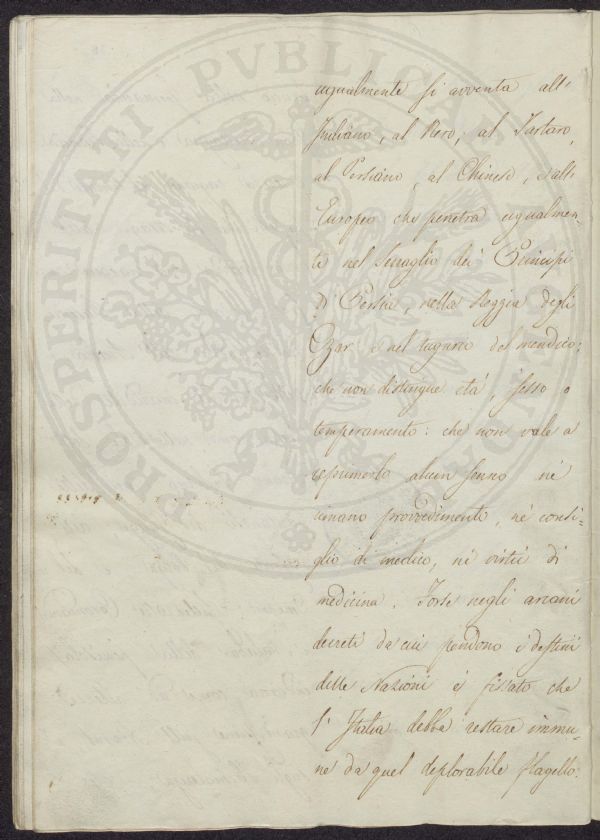 PROSPERITATI PVBLICAE
egualmente si avventa all'
Indiano, al Nero, al Tartaro,
al Persiano, al Chinese, e all'
Europeo che penetra egualmen-
te nel Serraglio dei Principi
di Persia, nella Reggia degli
Czar e nel tugurio del mendico;
che non distingue età, sesso o
temperamento: che non vale a
reprimerlo alcun senno nè
umano provvedimento, nè consi-
glio di medico, nè virtù di
medicina. Forse negli arcani
decreti da cui pendono i destini
delle Nazioni è fissato che
l'Italia debba restare immu-
ne da quel deplorabile flagello.